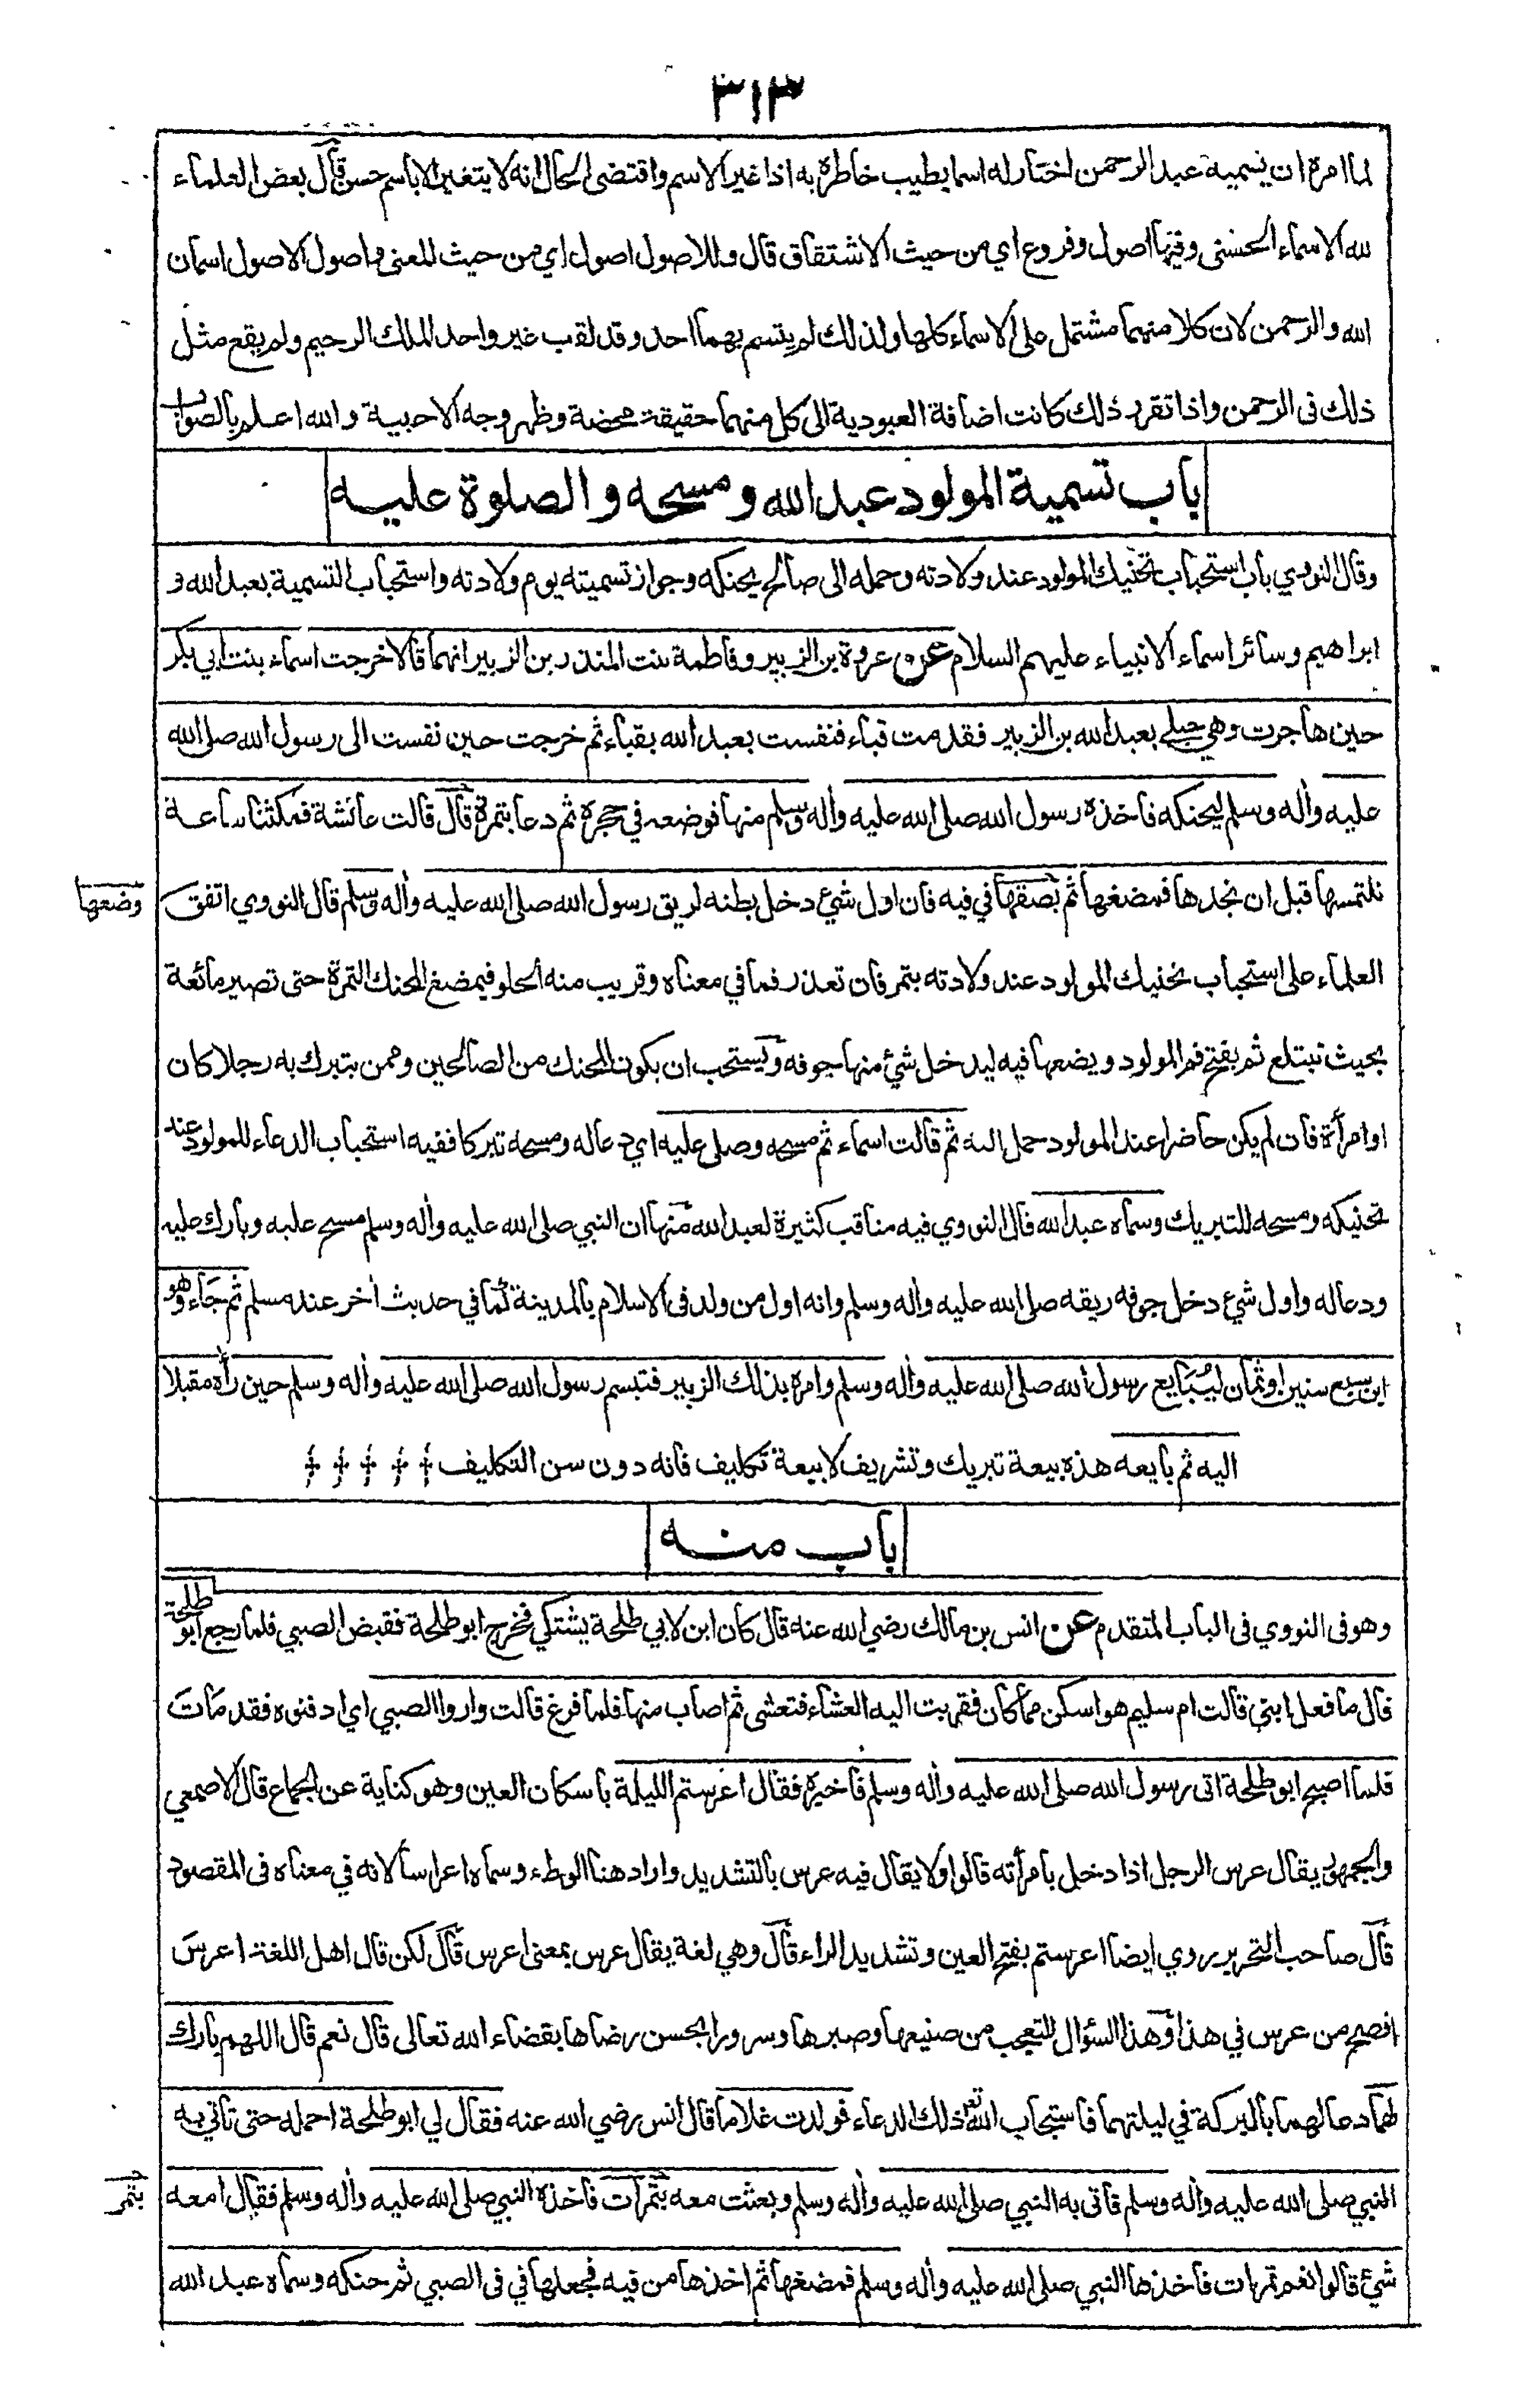 ٣١٣
لما امره ان يسميه عبد الرحمن اختار له اسما يطيب خاطره به اذا غير الاسم واقتضى الحال انه لا يتغير الا باسم حسن قال بعض العلماء
لله الاسماء الحسنى وفيها اصول وفروع اي من حيث الاشتقاق قال وللاصول اصول اي من حيث المعنى فاصول الاصول اسمان
الله والرحمن لان كلا منهما مشتمل على الاسماء كلها ولذلك لم يتسم بهما احد وقد لقب غير واحد الملك الرحيم ولم يقع مثل
ذلك فى الرحمن واذا تقرر ذلك كانت اضافة العبودية الى كل منهما حقيقة محضة وظهر وجه الاحبية والله اعلم بالصواب
باب تسمية المولود عبد الله ومسحه والصلوة عليه
وقال النووي باب استحباب تحنيك المولود عند ولادته وحمله الى صالح يحنكه وجواز تسميته يوم ولادته واستحباب التسمية بعبد الله و
ابراهيم وسائر اسماء الانبياء عليهم السلام عن عروة بن الزبير وفاطمة بنت المنذر بن الزبير انهما قالا خرجت اسماء بنت ابي بكر
حين هاجرت وهي حبلى بعبد الله بن الزبير فقدمت قباء فنفست بعبد الله بقباء ثم خرجت حين نفست الى رسول الله صلى الله
عليه واله وسلم ليحنكه فاخذه رسول الله صلى الله عليه واله وسلم منها فوضعه في حجره ثم دعا بتمرة قال قالت عائشة فمكثنا ساعة
نلتمسها قبل ان نجدها فمضغها ثم بصقها في فيه فان اول شيء دخل بطنه لريق رسول الله صلى الله عليه واله وسلم قال النووي اتفق
وضعها
العلماء على استحباب تحنيك المولود عند ولادته بتمر فان تعذر فما في معناه وقريب منه الحلو فيمضغ المحنك التمرة حتى تصير مائعة
بحيث تبتلع ثم يفتح فم المولود ويضعها فيه ليدخل شئ منها جوفه ويستحب ان يكون المحنك من الصالحين وممن يتبرك به رجلا كان
او امرأة فان لم يكن حاضرا عند المولود حمل اليه ثم قالت اسماء ثم مسحه وصلى عليه اي دعا له ومسحه تبركا ففيه استحباب الدعاء للمولود عند
تحنيكه ومسحه للتبريك وسماه عبد الله قال النووي فيه مناقب كثيرة لعبد الله منها ان النبي صلى الله عليه واله وسلم مسح عليه وبارك عليه
ودعا له واول شيء دخل جوفه ريقه صلى الله عليه واله وسلم وانه اول من ولد فى الاسلام بالمدينة كما في حديث اخر عند مسلم ثم جاء وهو
ابن سبع سنين او ثمان ليبايع رسول الله صلى الله عليه واله وسلم وامره بذلك الزبير فتبسم رسول الله صلى الله عليه واله وسلم حين رأه مقبلا
اليه ثم بايعه هذه بيعة تبريك وتشريف لا بيعة تكليف فانه دون سن التكليف
باب منه
وهو فى النووي فى الباب المتقدم عن انس بن مالك رضي الله عنه قال كان ابن لابي طلحة يشتكي فخرج ابو طلحة فقبض الصبي فلما رجع ابو طلحة
قال ما فعل ابني قالت ام سليم هو اسكن مما كان فقربت اليه العشاء فتعشى ثم اصاب منها فلما فرغ قالت واروا الصبي اي ادفنوه فقد مات
فلما اصبح ابو طلحة اتى رسول الله صلى الله عليه واله وسلم فاخبره فقال اعرستم الليلة باسكان العين وهو كناية عن الجماع قال الاصمعي
والجمهور يقال عرس الرجل اذا دخل بامرأته قالوا ولا يقال فيه عرس بالتشديد واراد هنا الوطء وسماه اعراسا لانه في معناه فى المقصود
قال صاحب التحرير روي ايضا اعرستم بفتح العين وتشديد الراء قال وهي لغة يقال عرس بمعنى اعرس قال لكن قال اهل اللغة اعرس
افصح من عرس في هذا وهذا السؤال للتعجب من صنيعها وصبرها وسرورا بحسن رضاها بقضاء الله تعالى قال نعم قال اللهم بارك
لهما دعا لهما بالبركة في ليلتهما فاستجاب الله تعالى ذلك الدعاء فولدت غلاما قال انس رضي الله عنه فقال لي ابو طلحة احمله حتى تاتي به
النبي صلى الله عليه واله وسلم فاتى به النبي صلى الله عليه واله وسلم وبعثت معه بتمرات فاخذه النبي صلى الله عليه واله وسلم فقال امعه
بتمر
شئ قالوا نعم تمرات فاخذها النبي صلى الله عليه واله وسلم فمضغها ثم اخذها من فيه فجعلها في فى الصبي ثم حنكه وسماه عبد الله